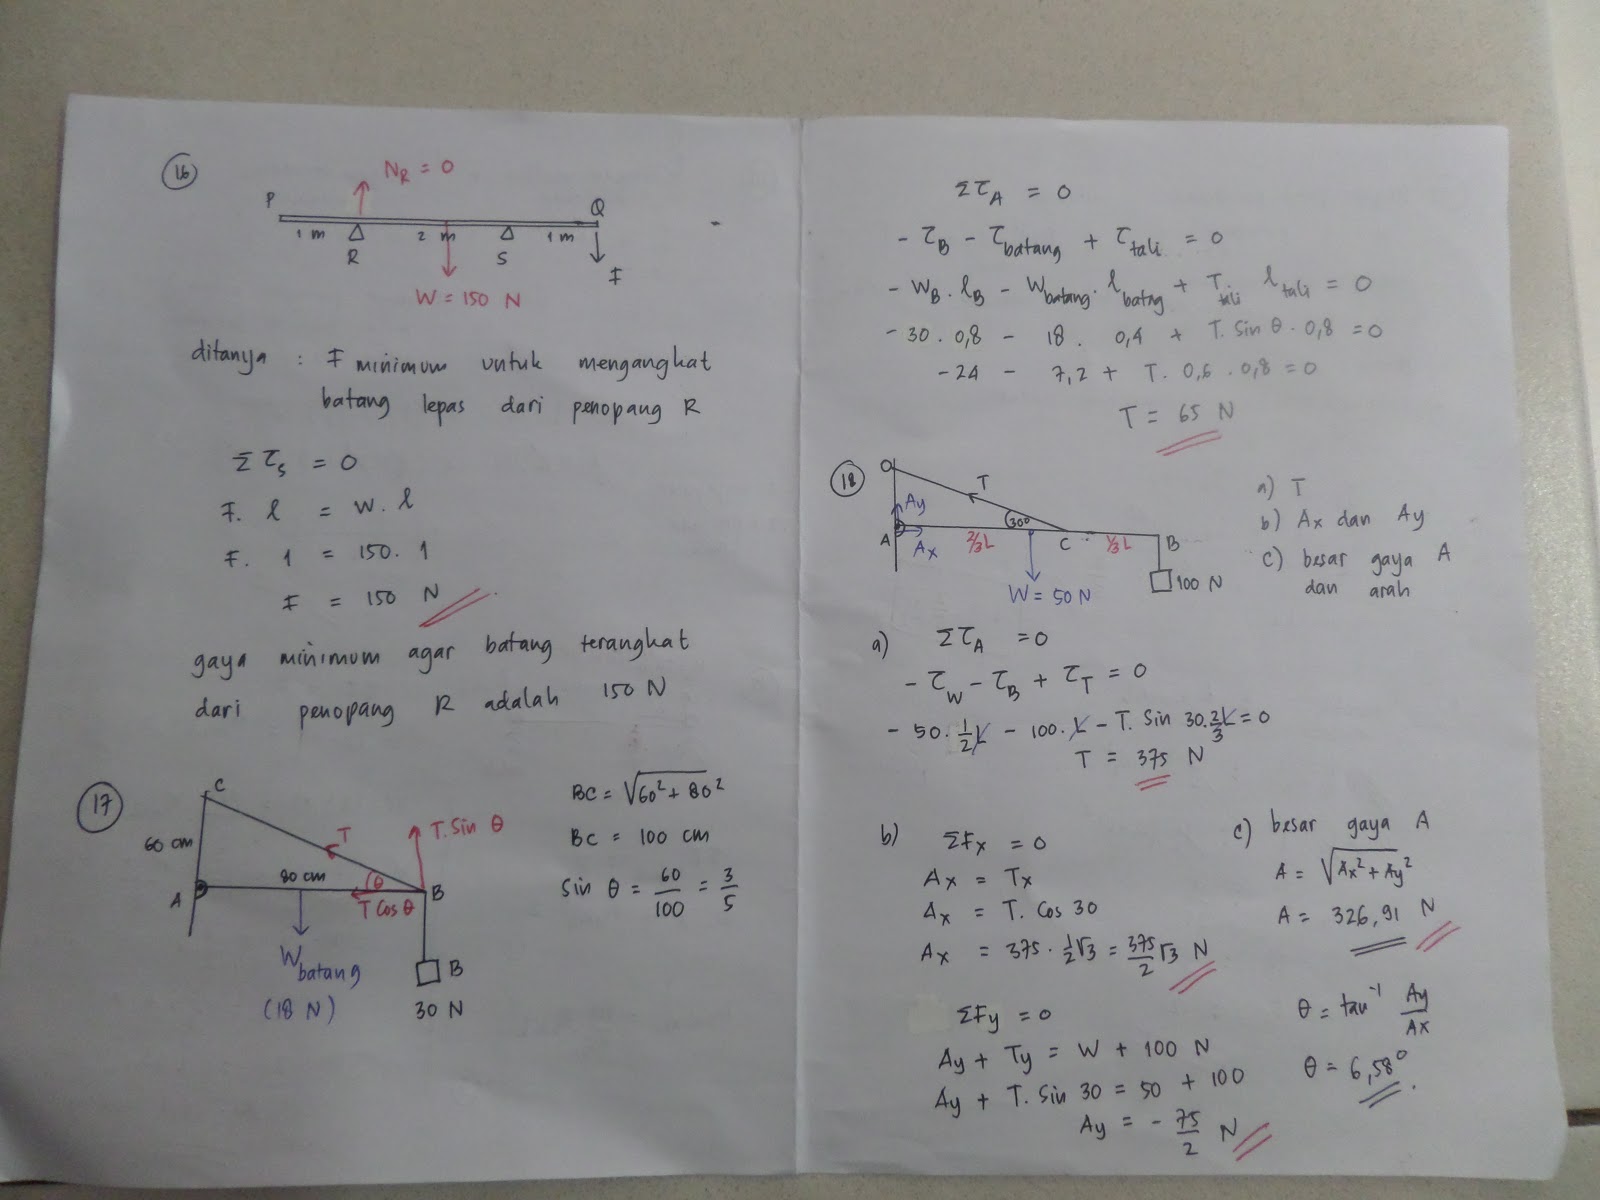 16
N_R = 0
P
Q
1 m
2 m
1 m
R
S
F
W = 150 N
ditanya : F minimum untuk mengangkat
batang lepas dari penopang R
Στ_s = 0
F. l = W. l
F. 1 = 150. 1
F = 150 N
gaya minimum agar batang terangkat
dari penopang R adalah 150 N
17
C
60 cm
T
T. Sin θ
80 cm
θ
A
B
T Cos θ
W batang
(18 N)
B
30 N
BC = √60² + 80²
BC = 100 cm
Sin θ = 60/100 = 3/5
Στ_A = 0
- τ_B - τ_batang + τ_tali = 0
- W_B . l_B - W_batang . l_batag + T_tali l_tali = 0
- 30 . 0,8 - 18 . 0,4 + T. Sin θ . 0,8 = 0
- 24 - 7,2 + T. 0,6 . 0,8 = 0
T = 65 N
18
O
T
Ay
30°
A
Ax
2/3 L
C
1/3 L
B
W = 50 N
100 N
a) T
b) Ax dan Ay
c) besar gaya A
dan arah
a) Στ_A = 0
- τ_W - τ_B + τ_T = 0
- 50. 1/2 L - 100. L - T. Sin 30. 2/3 L = 0
T = 375 N
b) ΣFx = 0
Ax = Tx
Ax = T. Cos 30
Ax = 375 . 1/2 √3 = 375/2 √3 N
ΣFy = 0
Ay + Ty = W + 100 N
Ay + T. Sin 30 = 50 + 100
Ay = - 75/2 N
c) besar gaya A
A = √Ax² + Ay²
A = 326,91 N
θ = tan⁻¹ Ay/Ax
θ = 6,58°